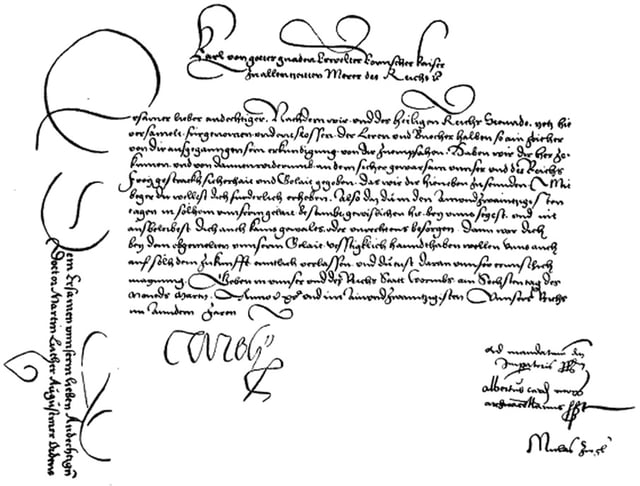 Karl von gotes gnaden Erwelter Romischer Kaiser
zu allen zeiten Merer des Reichs
Ersamer lieber andechtiger. Nachdem wir und des Heiligen Reichs Stennde, yetz hie
versamelt, furgenomen und entslossen, der Leren und Buecher halben, so ain zeither
von dir ausgegangen sein, erkundigung von dir zu empfahen, Haben wir dir her ze-
kumen, und von dannen widerumb an dein sicher gewarsam, unnser und des Reichs
Frey gestrackh sicherhait und Gelait gegeben, das wir dir hieneben zusenden, Mit
beger du wellest dich furderlich erheben, Also das du in den Ainundzwaintzigisten
tagen in solhem unnserm gelait bestimbt gewislichen hie bey unns seyest, und nit
ausbleibest, dich auch kains gewalts oder unrechtens besorgen. Dann wir dich
bey dem obgemelten unnserm Gelait vestigklich handthaben wellen, Unns auch
auf solh dein zukunfft entlich verlassen, und du tust daran unnser ernstlich
maynung. Geben in unnser und des Reichs Statt Wormbs am Sechsten tag des
Monads Marcy. Anno und im Ainundzwaintzigisten Unnsers Reichs
im Anndern Jaren
Carolus
Ad mandatum
Imperatoris
Albertus card
archicancellarius
Niclas
Dem Ersamen unnserm lieben Andechtigen
Doctor Martin Luther Augustiner Ordens